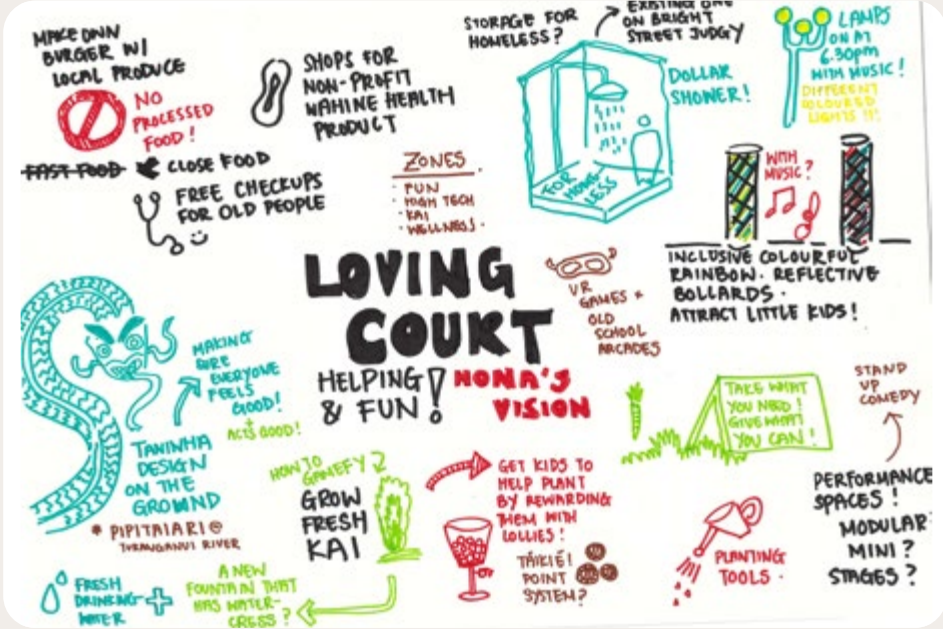 MAKE OWN
BURGER W/
LOCAL PRODUCE
NO
PROCESSED
FOOD!
FAST FOOD
CLOSE FOOD
FREE CHECKUPS
FOR OLD PEOPLE
SHOPS FOR
NON-PROFIT
WAHINE HEALTH
PRODUCT
ZONES
· FUN
· HIGH TECH
· KAI
· WELLNESS.
STORAGE FOR
HOMELESS?
EXISTING ONE
ON BRIGHT
STREET JUDGY
DOLLAR
SHOWER!
FOR HOME-
LESS
LAMPS
ON AT
6.30pm
WITH MUSIC!
DIFFERENT
COLOURED
LIGHTS !!
WITH
MUSIC?
INCLUSIVE COLOURFUL
RAINBOW. REFLECTIVE
BOLLARDS.
ATTRACT LITTLE KIDS!
LOVING
COURT
HELPING
& FUN!
NONA'S
VISION
VR
GAMES &
OLD
SCHOOL
ARCADES
MAKING
SURE
EVERYONE
FEELS
GOOD!
+
ACTS GOOD!
TANIWHA
DESIGN
ON THE
GROUND
* PIPITAIARI @
TURANGANUI RIVER
FRESH
DRINKING
WATER
+
A NEW
FOUNTAIN THAT
HAS WATER-
CRESS?
HOW TO
GAMEFY
GROW
FRESH
KAI
GET KIDS TO
HELP PLANT
BY REWARDING
THEM WITH
LOLLIES!
TĀIKIĒ!
POINT
SYSTEM?
TAKE WHAT
YOU NEED!
GIVE WHAT
YOU CAN!
PLANTING
TOOLS.
STAND
UP
COMEDY
PERFORMANCE
SPACES!
MODULAR
MINI?
STAGES?